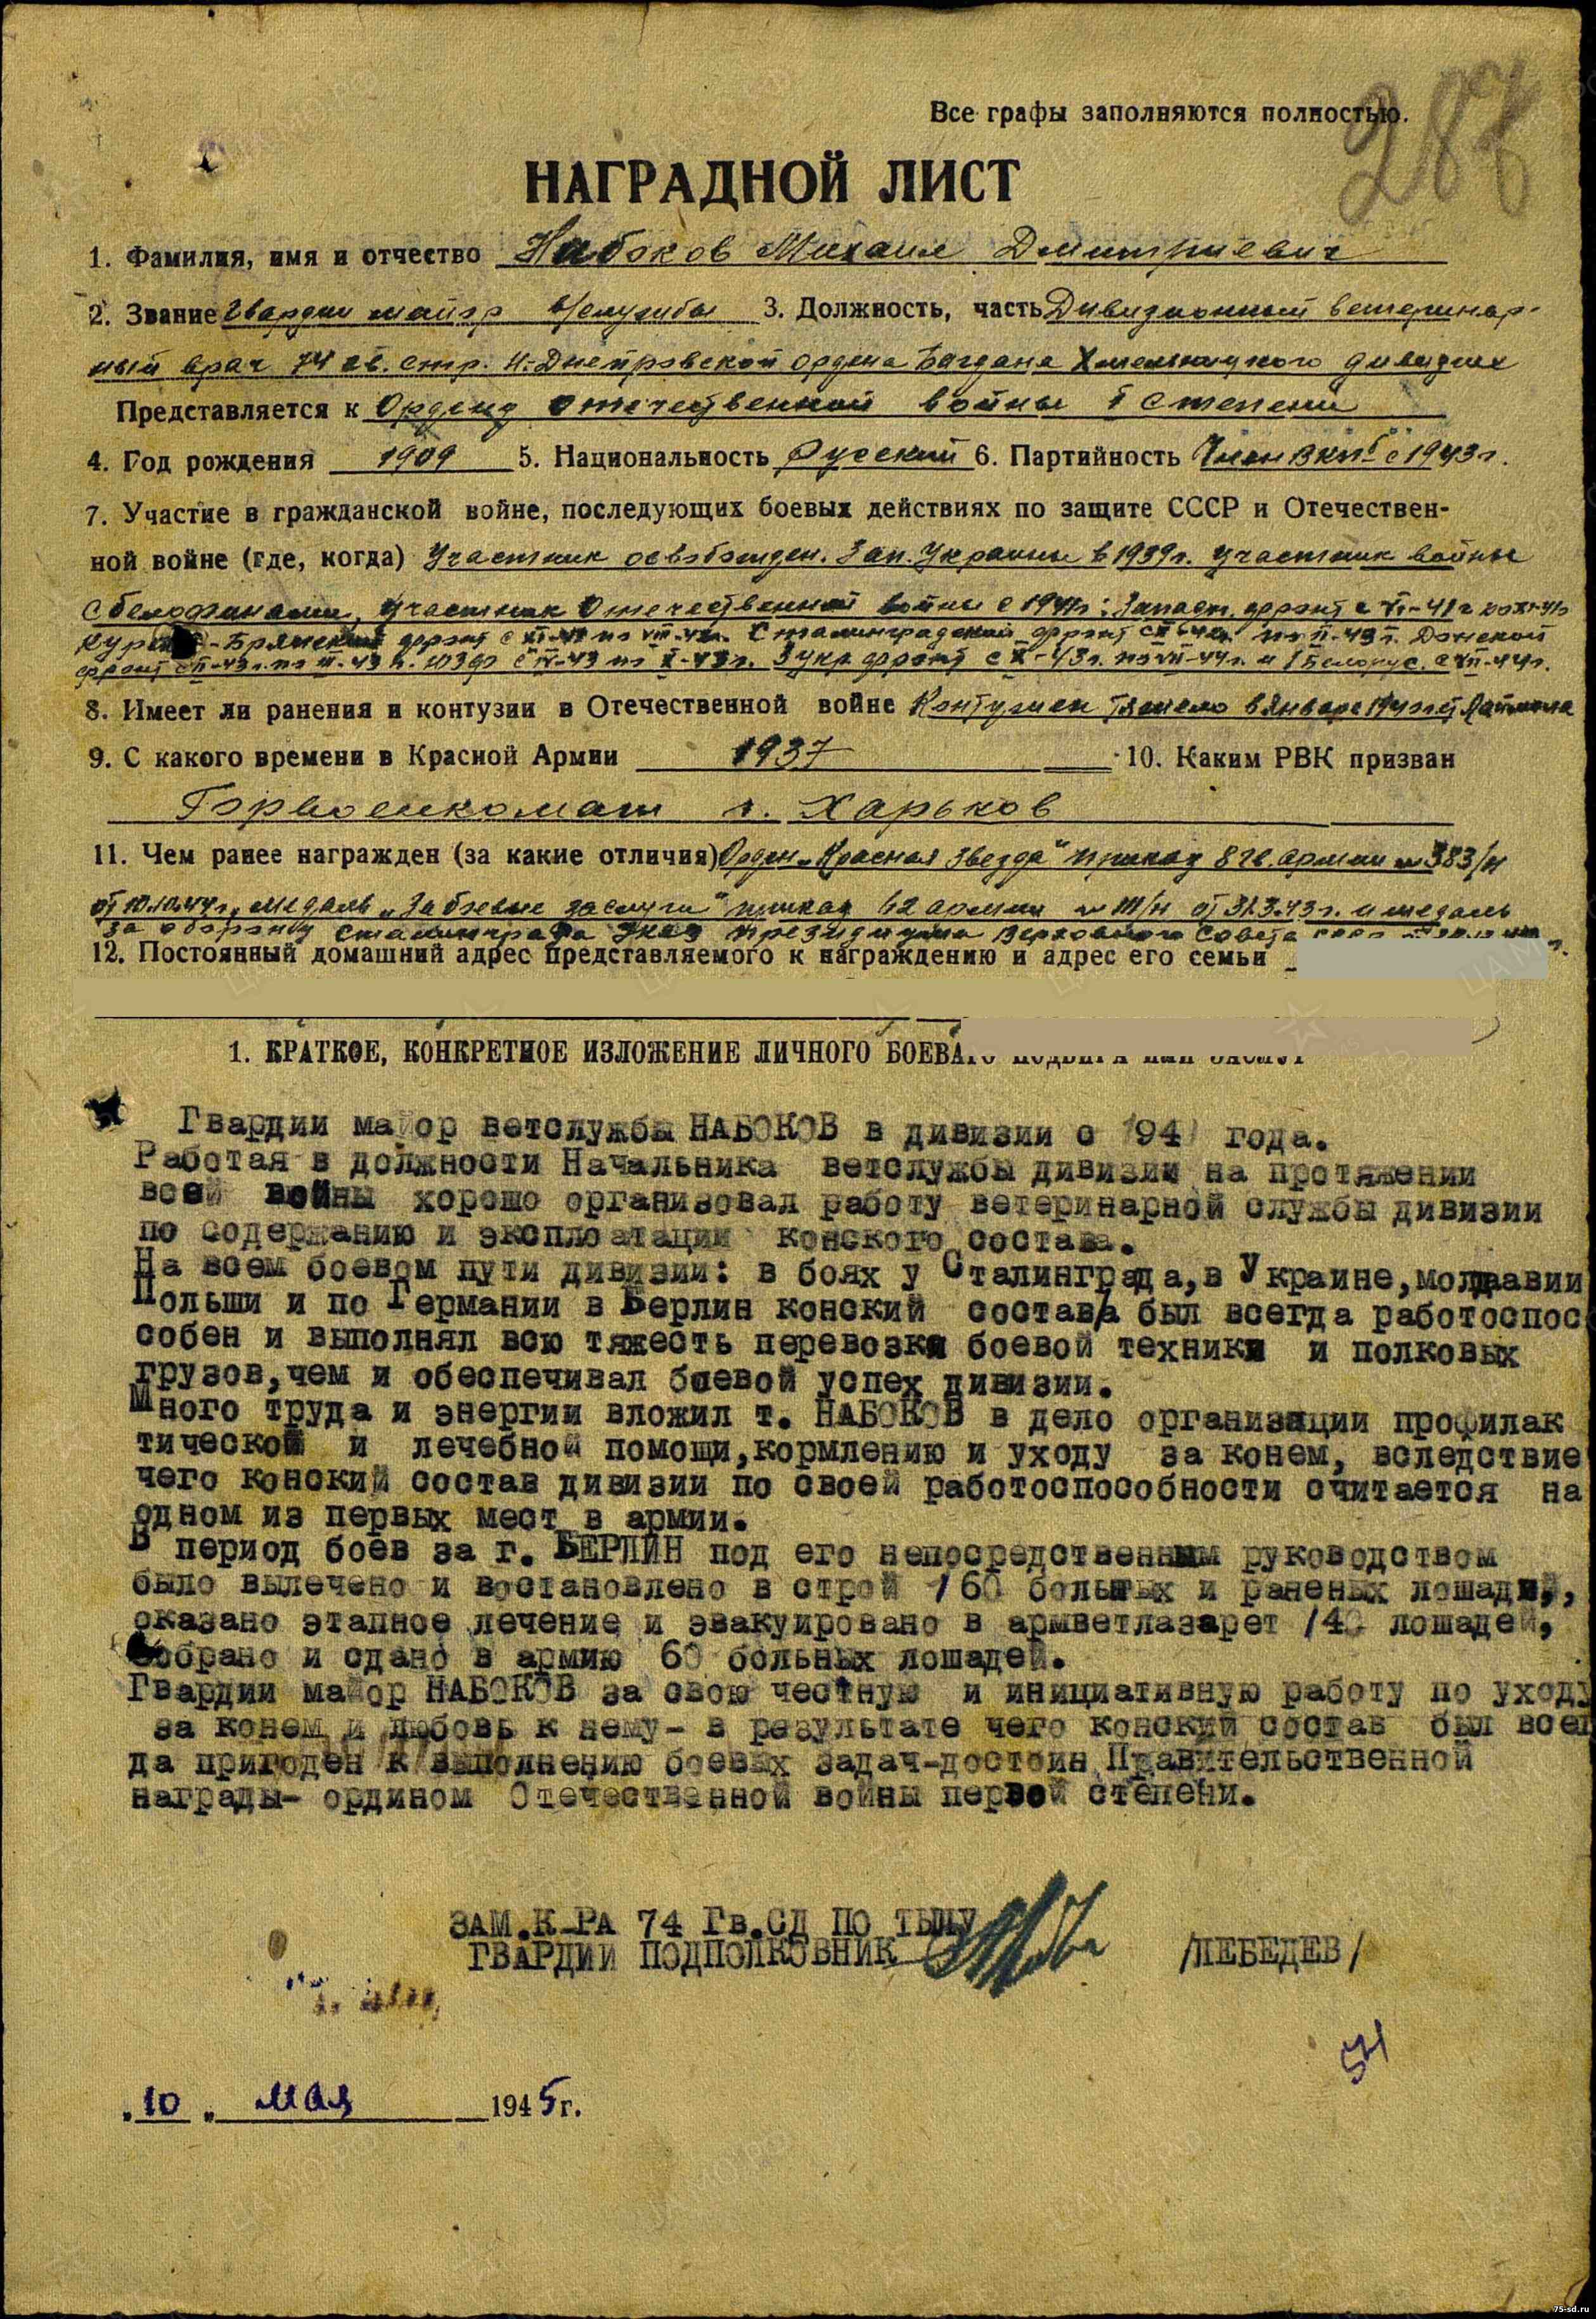 287
Все графы заполняются полностью.
НАГРАДНОЙ ЛИСТ
1. Фамилия, имя и отчество Набоков Михаил Дмитриевич
2. Звание Гвардии майор в/службы 3. Должность, часть Дивизионный ветеринар-
ный врач 74 гв. стр. Н-Днепровской ордена Богдана Хмельницкого дивизии
Представляется к Ордену Отечественной войны I степени
4. Год рождения 1909 5. Национальность Русский 6. Партийность Член ВКПб с 1943г.
7. Участие в гражданской войне, последующих боевых действиях по защите СССР и Отечествен-
ной войне (где, когда) Участник освобожден. Зап. Украины в 1939г. участник войны
с белофинами, участник Отечественной войны с 1941г: Запасн. фронт с VI-41г по XI-41г
Брянский фронт с XI-41 по VIII-42г. Сталинградский фронт по II-43г. Донской
фронт с II-43г. по III-43г. ЮЗФ с IV-43 по X-43г. 3 укр. фронт с X-43г. по VII-44г. и 1 Белорус. с VII-44г.
8. Имеет ли ранения и контузии в Отечественной войне Контужен тяжело в Январе
9. С какого времени в Красной Армии 1937 10. Каким РВК призван
Горвоенкомат г. Харьков
11. Чем ранее награжден (за какие отличия) Орден „Красная Звезда" приказ 8 гв. армии № 383/н
от 10.10.44г., медаль „За боевые заслуги" приказ 62 армии № 111/н от 31.3.43г. и медаль
за оборону Сталинграда Указ Президиума Верховного Совета
12. Постоянный домашний адрес представляемого к награждению и адрес его семьи
1. КРАТКОЕ, КОНКРЕТНОЕ ИЗЛОЖЕНИЕ ЛИЧНОГО БОЕВОГО
Гвардии майор ветслужбы НАБОКОВ в дивизии с 194 года.
Работая в должности Начальника ветслужбы дивизии на протяжении
всей войны хорошо организовал работу ветеринарной службы дивизии
по содержанию и эксплоатации конского состава.
На всем боевом пути дивизии: в боях у Сталинграда, в Украине, молдавии
Польши и по Германии в Берлин конский состава был всегда работоспос
собен и выполнял всю тяжесть перевозки боевой техники и полковых
грузов, чем и обеспечивал боевой успех дивизии.
Много труда и энергии вложил т. НАБОКОВ в дело организации профилак
тической и лечебной помощи, кормлению и уходу за конем, вследствие
чего конский состав дивизии по своей работоспособности считается на
одном из первых мест в армии.
В период боев за г. БЕРЛИН под его непосредственным руководством
было вылечено и востановлено в строй 160 больных и раненых лошадей,
оказано этапное лечение и эвакуировано в армветлазарет 140 лошадей,
собрано и сдано в армию 60 больных лошадей.
Гвардии майор НАБОКОВ за свою честную и инициативную работу по уходу
за конем и любовь к нему- в результате чего конский состав был всег
да пригоден к выполнению боевых задач-достоин Правительственной
награды- ордином Отечественной войны первой степени.
ЗАМ.К-РА 74 Гв.СД ПО ТЫЛУ
ГВАРДИИ ПОДПОЛКОВНИК /ЛЕБЕДЕВ/
„10" мая 1945г.
75-sd.ru